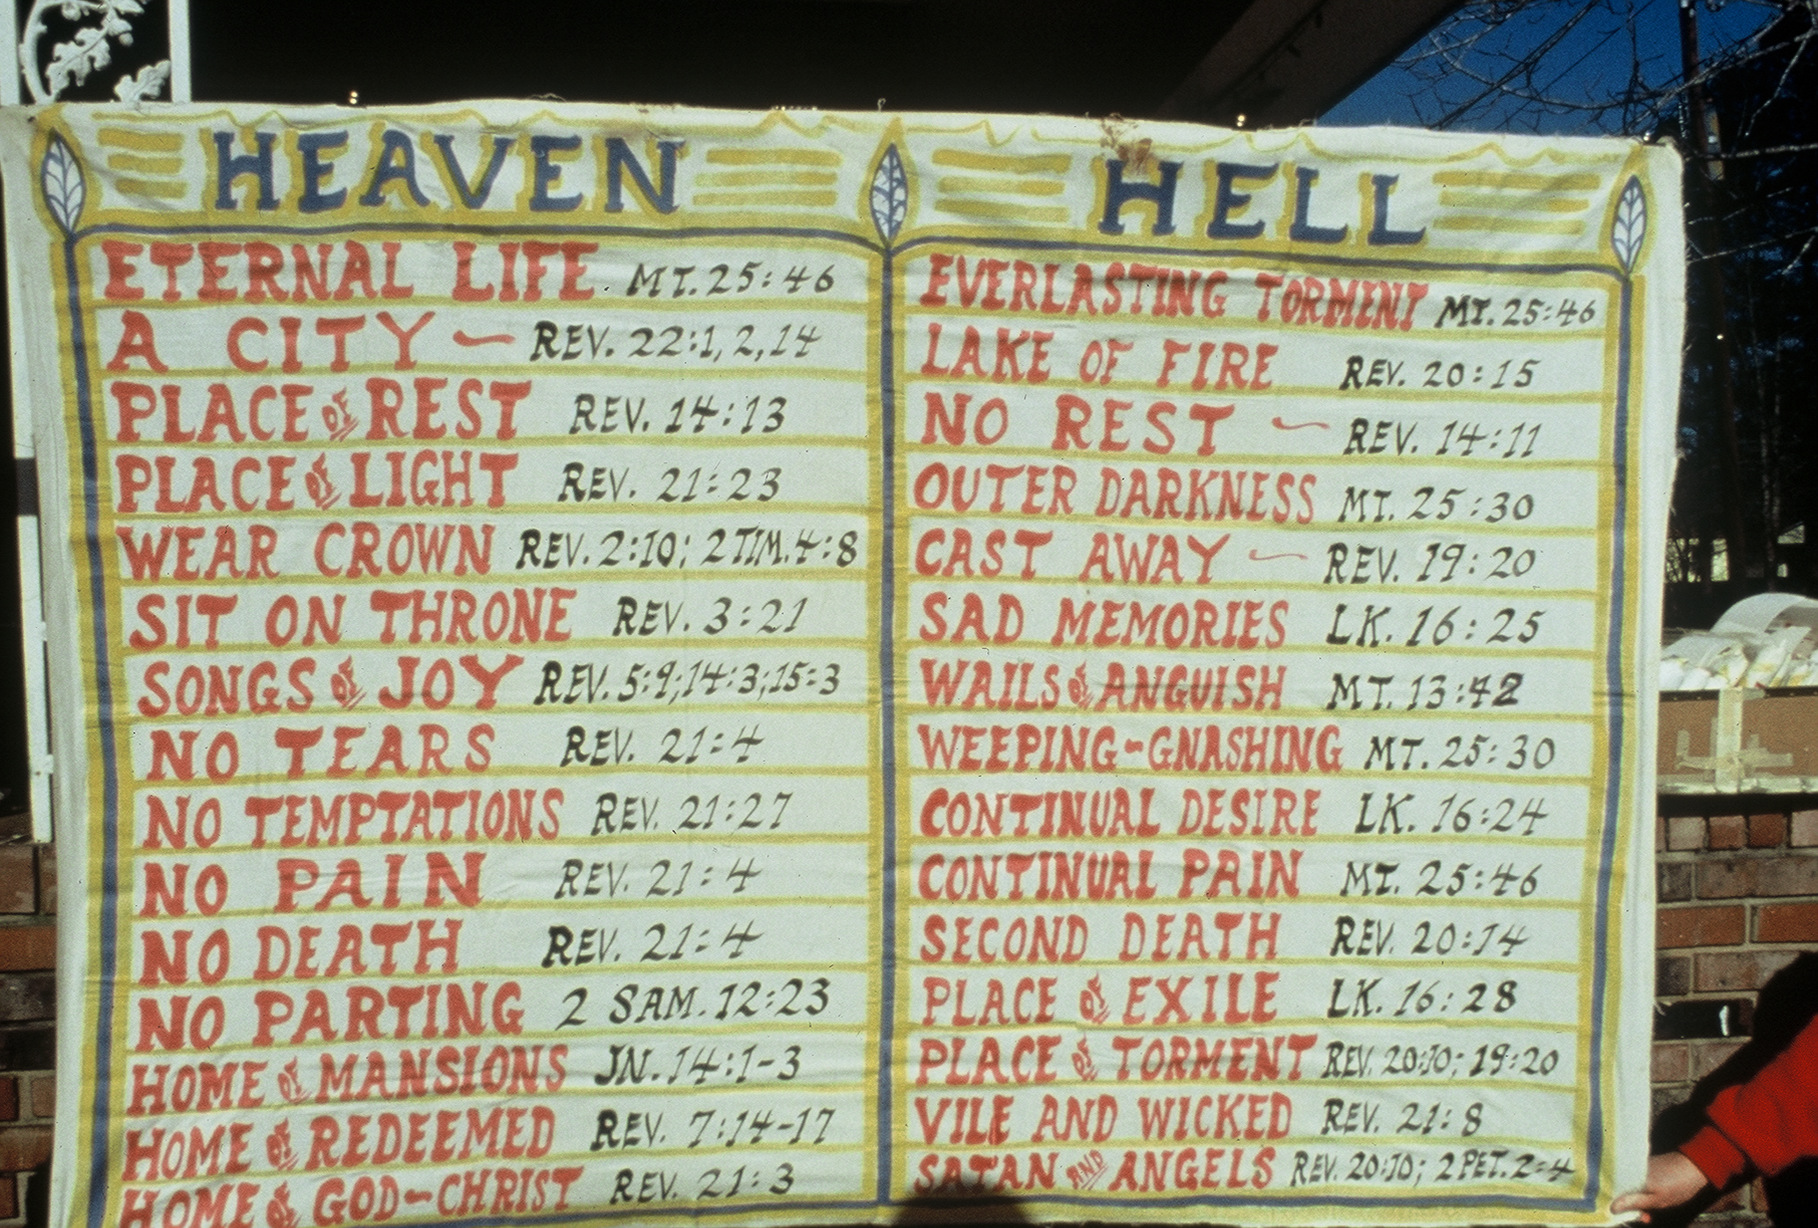 HEAVEN
ETERNAL LIFE MT. 25:46
A CITY – REV. 22:1, 2, 14
PLACE OF REST REV. 14:13
PLACE OF LIGHT REV. 21:23
WEAR CROWN REV. 2:10; 2 TIM. 4:8
SIT ON THRONE REV. 3:21
SONGS OF JOY REV. 5:9; 14:3; 15:3
NO TEARS REV. 21:4
NO TEMPTATIONS REV. 21:27
NO PAIN REV. 21:4
NO DEATH REV. 21:4
NO PARTING 2 SAM. 12:23
HOME OF MANSIONS JN. 14:1-3
HOME OF REDEEMED REV. 7:14-17
HOME OF GOD-CHRIST REV. 21:3
HELL
EVERLASTING TORMENT MT. 25:46
LAKE OF FIRE REV. 20:15
NO REST – REV. 14:11
OUTER DARKNESS MT. 25:30
CAST AWAY – REV. 19:20
SAD MEMORIES LK. 16:25
WAILS OF ANGUISH MT. 13:42
WEEPING-GNASHING MT. 25:30
CONTINUAL DESIRE LK. 16:24
CONTINUAL PAIN MT. 25:46
SECOND DEATH REV. 20:14
PLACE OF EXILE LK. 16:28
PLACE OF TORMENT REV. 20:10; 19:20
VILE AND WICKED REV. 21:8
SATAN AND ANGELS REV. 20:10; 2 PET. 2:4